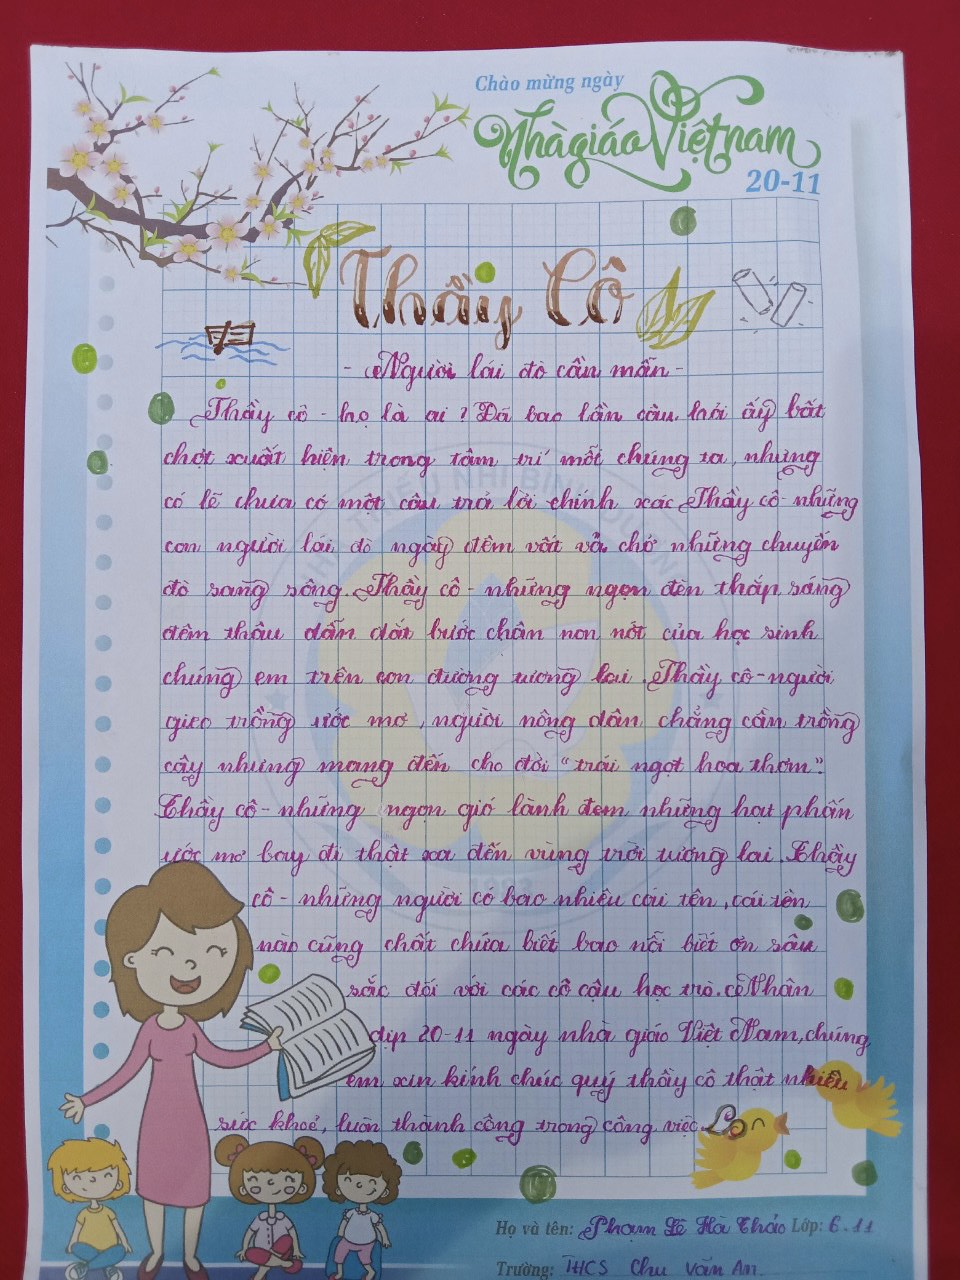 Chào mừng ngày
Nhà giáo Việt nam
20-11
Thầy Cô
- Người lái đò cần mẫn -
Thầy cô - họ là ai ? Đã bao lần câu hỏi ấy bất
chợt xuất hiện trong tâm trí mỗi chúng ta, nhưng
có lẽ chưa có một câu trả lời chính xác. Thầy cô những
con người lái đò ngày đêm vất vả chở những chuyến
đò sang sông. Thầy cô - những ngọn đèn thắp sáng
đêm thâu dẫn dắt bước chân non nớt của học sinh
chúng em trên con đường tương lai. Thầy cô - người
gieo trồng ước mơ, người nông dân chẳng cần trồng
cây nhưng mang đến cho đời "trái ngọt hoa thơm".
Thầy cô - những ngọn gió lành đem những hạt phấn
ước mơ bay đi thật xa đến vùng trời tương lai. Thầy
cô - những người có bao nhiêu cái tên, cái tên
nào cũng chất chứa biết bao nỗi biết ơn sâu
sắc đối với các cô cậu học trò. Nhân
dịp 20-11 ngày nhà giáo Việt Nam, chúng
em xin kính chúc quý thầy cô thật nhiều
sức khoẻ, luôn thành công trong công việc.
Họ và tên: Phạm Lê Hà Thảo Lớp: 6.11
Trường: THCS Chu Văn An.